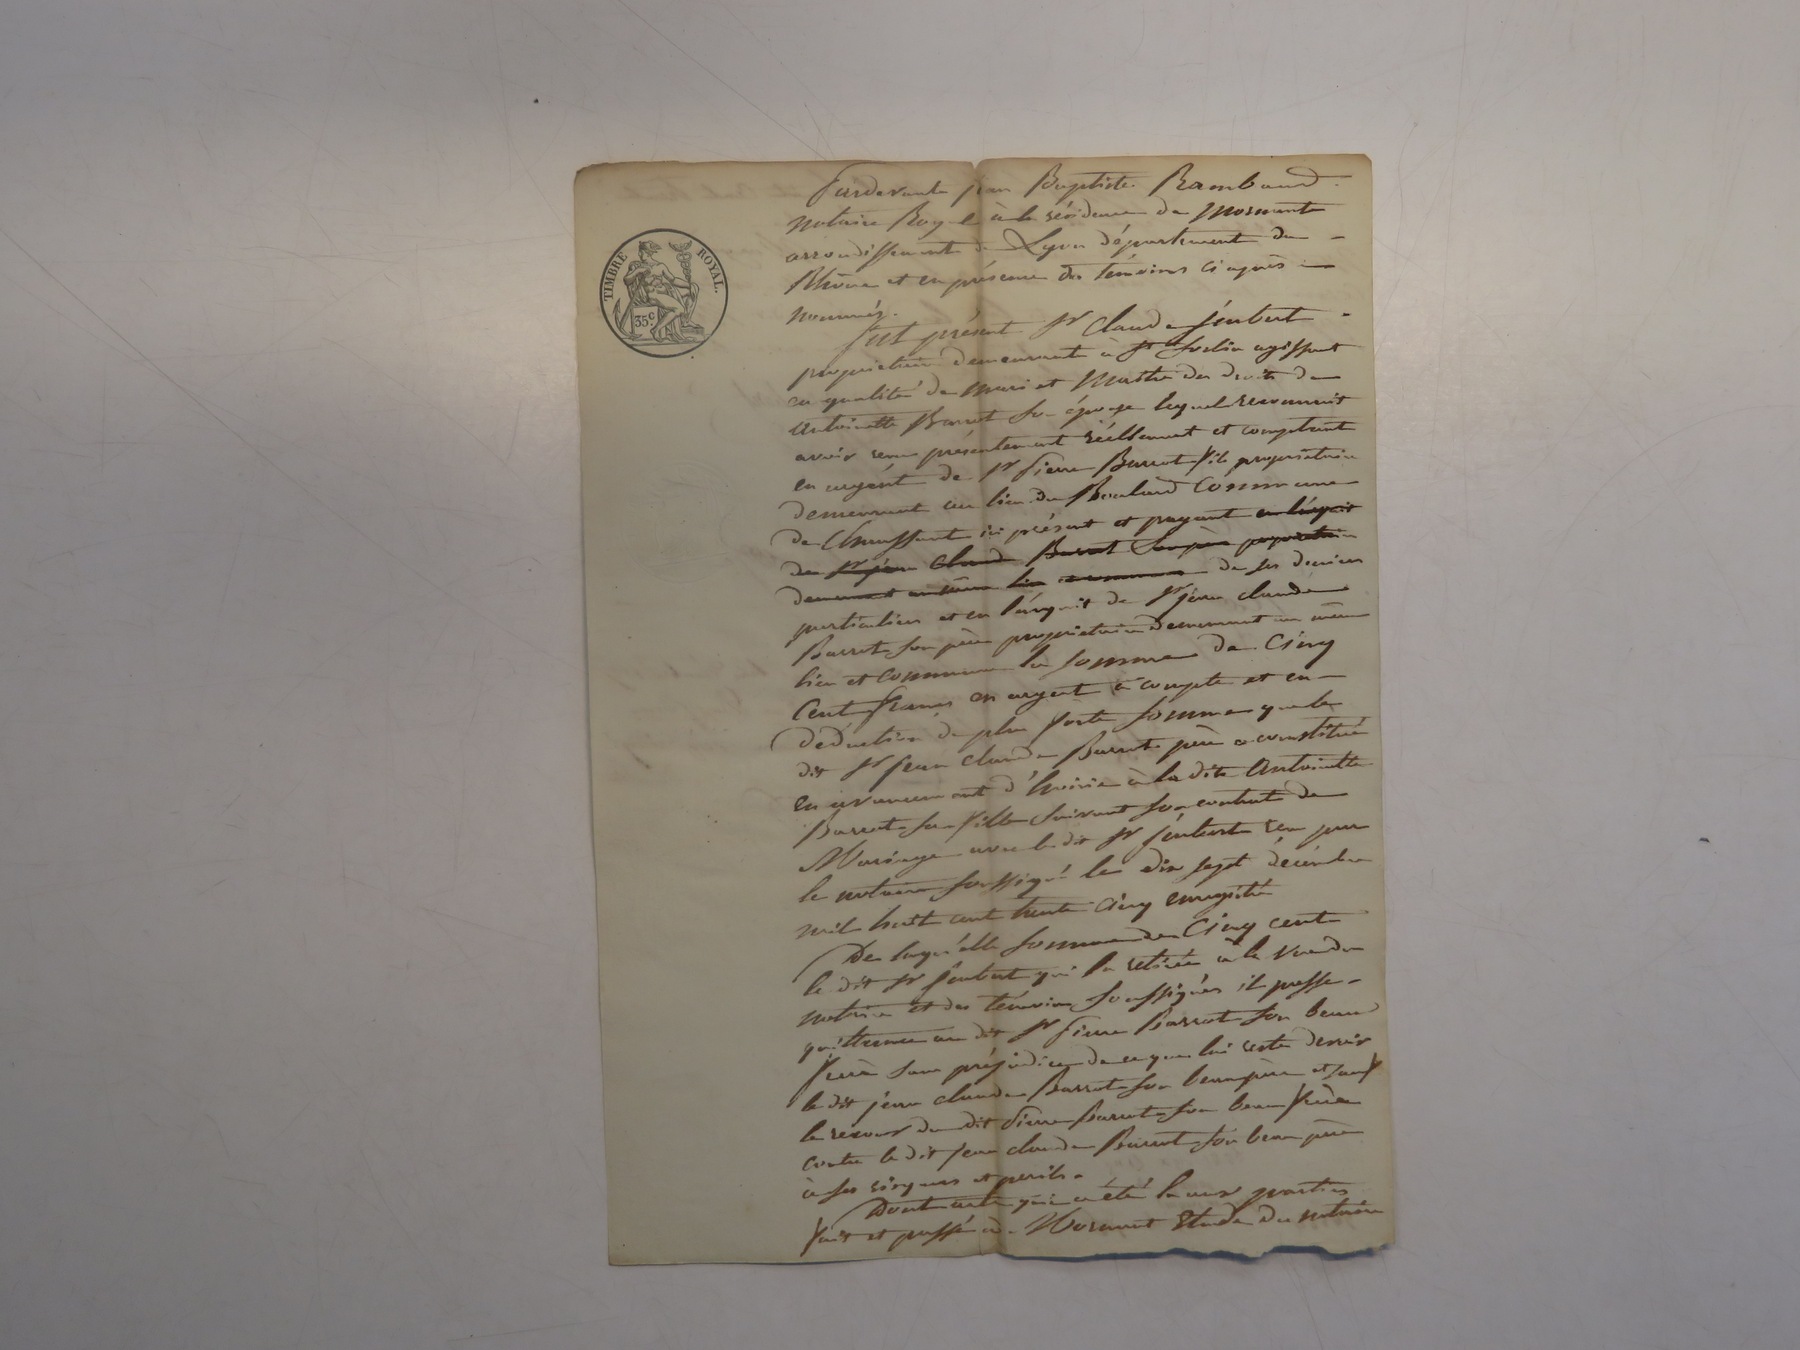 TIMBRE ROYAL.
35c.
Pardevant jean Baptiste Rambaud
notaire Royal à la résidence de Mornant
arrondissement de Lyon département du
Rhône et en présence des témoins ci après
nommés.
fut présent Sr Claude
propriétaire demeurant à St Sorlin agissant
en qualité de mari et Maître des droits de
Antoinette Barrot son épouse lequel reconnait
avoir reçu présentement réellement et comptant
en argent de Sr Pierre Barrot fils propriétaire
demeurant au lieu du Boulard Commune
de Chaussant ici présent et payant en l'acquit
de Sr jean Claude Barrot son père propriétaire
demeurant au même lieu et commune de ses deniers
particuliers et en l'acquit de Sr jean claude
Barrot son père propriétaire demeurant au même
lieu et Commune la somme de Cinq
Cent francs en argent à compte et en
déduction de plus forte somme que le
dit Sr jean claude Barrot père a constitué
en avancement d'hoirie à la dite Antoinette
Barrot sa fille suivant son contrat de
Mariage avec le dit Sr reçu par
le notaire soussigné le dix sept décembre
mil huit cent trente cinq enregistré
De laquelle somme de Cinq cent
le dit Sr qui l'a retirée à la vue du
notaire et des témoins soussignés il passe
quittance au dit Sr Pierre Barrot son beau
frère sans préjudice de ce que lui reste devoir
le dit jean claude Barrot son beau père et sauf
le recours du dit Pierre Barrot son beau frère
contre le dit jean claude Barrot son beau père
à ses risques et perils.
Dont acte qui a été lu aux parties
fait et passé à Mornant Etude du notaire